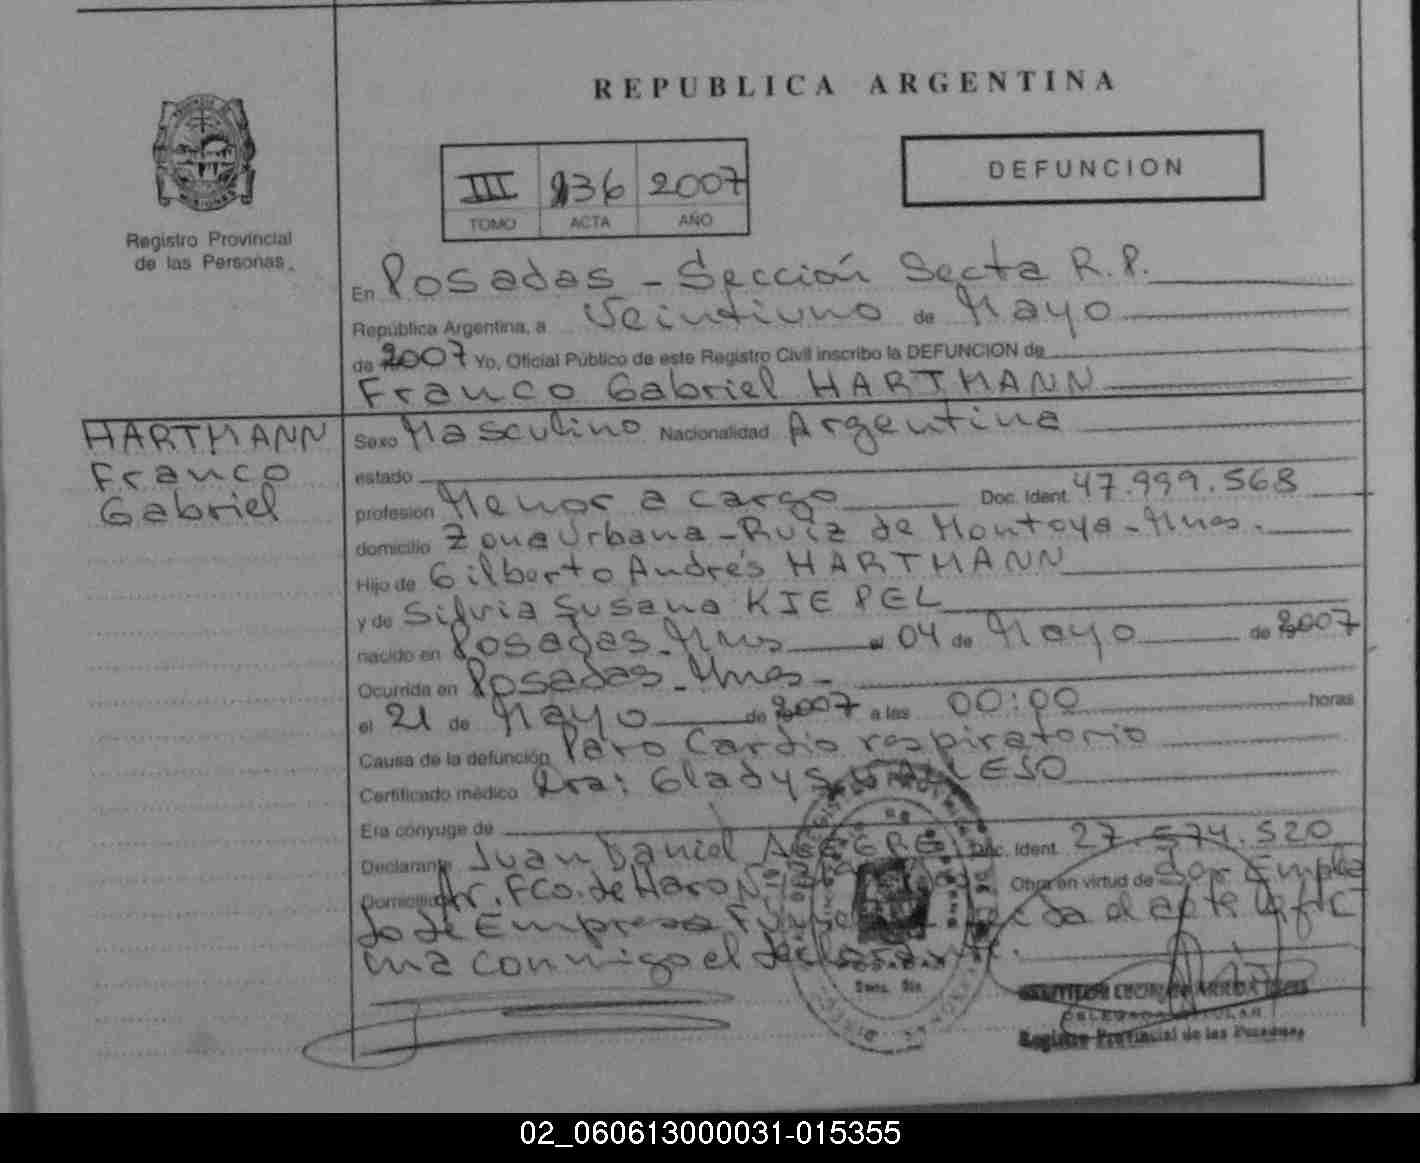 REPUBLICA ARGENTINA
DEFUNCION
III 936 2007
TOMO ACTA AÑO
Registro Provincial
de las Personas
En Posadas - Sección Secta R.P.
República Argentina, a Veintiuno de Mayo
de 2007 Yo, Oficial Público de este Registro Civil inscribo la DEFUNCION de
Franco Gabriel HARTMANN
HARTMANN
Franco
Gabriel
Sexo Masculino Nacionalidad Argentina
estado
profesion Menor a cargo Doc. Ident. 47.999.568
domicilio Zona Urbana - Ruiz de Montoya - Mnes.
Hijo de Gilberto Andrés HARTMANN
y de Silvia Susana KIEPEL
nacido en Posadas - Mnes el 04 de Mayo de 2007
Ocurrida en Posadas - Mnes -
el 21 de Mayo de 2007 a las 00:00 horas
Causa de la defunción Paro Cardio respiratorio
Certificado médico Dra: Gladys
Era cónyuge de
Declarante Juan Daniel Doc. Ident. 27.574.520
Domicilio Av. Fco. de Haro Nº Obra en virtud de Ser Emplea
do de Empresa
ma conmigo el
Registro Provincial de las Personas
02_060613000031-015355